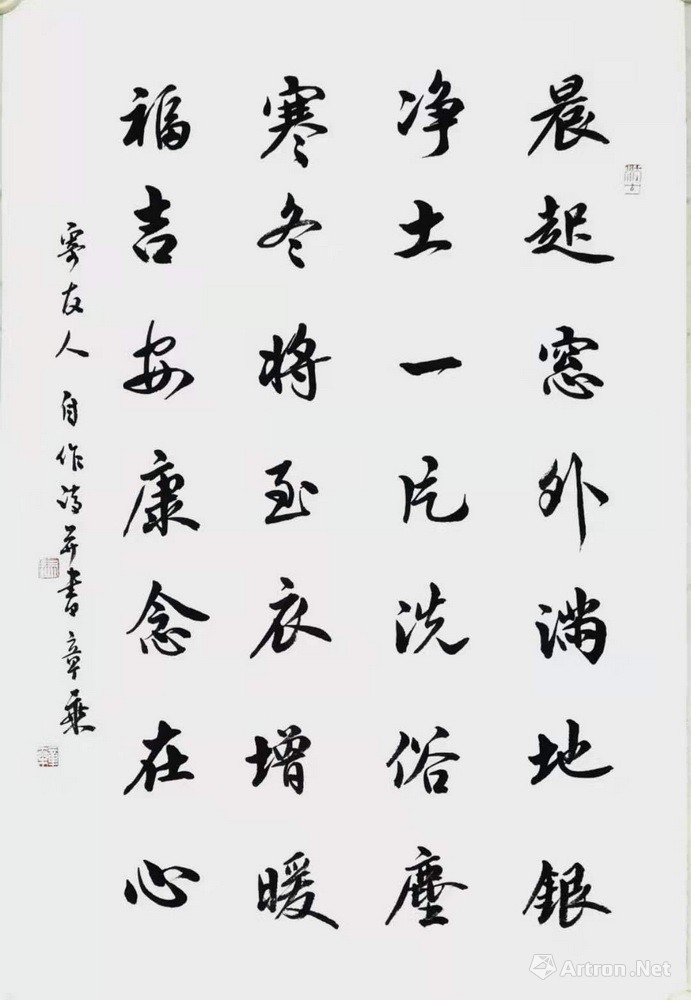 晨起窓外满地銀
净土一片洗俗塵
寒冬将至衣增暖
福吉安康念在心
寄友人 自作诗并書 章乘
Artron.Net